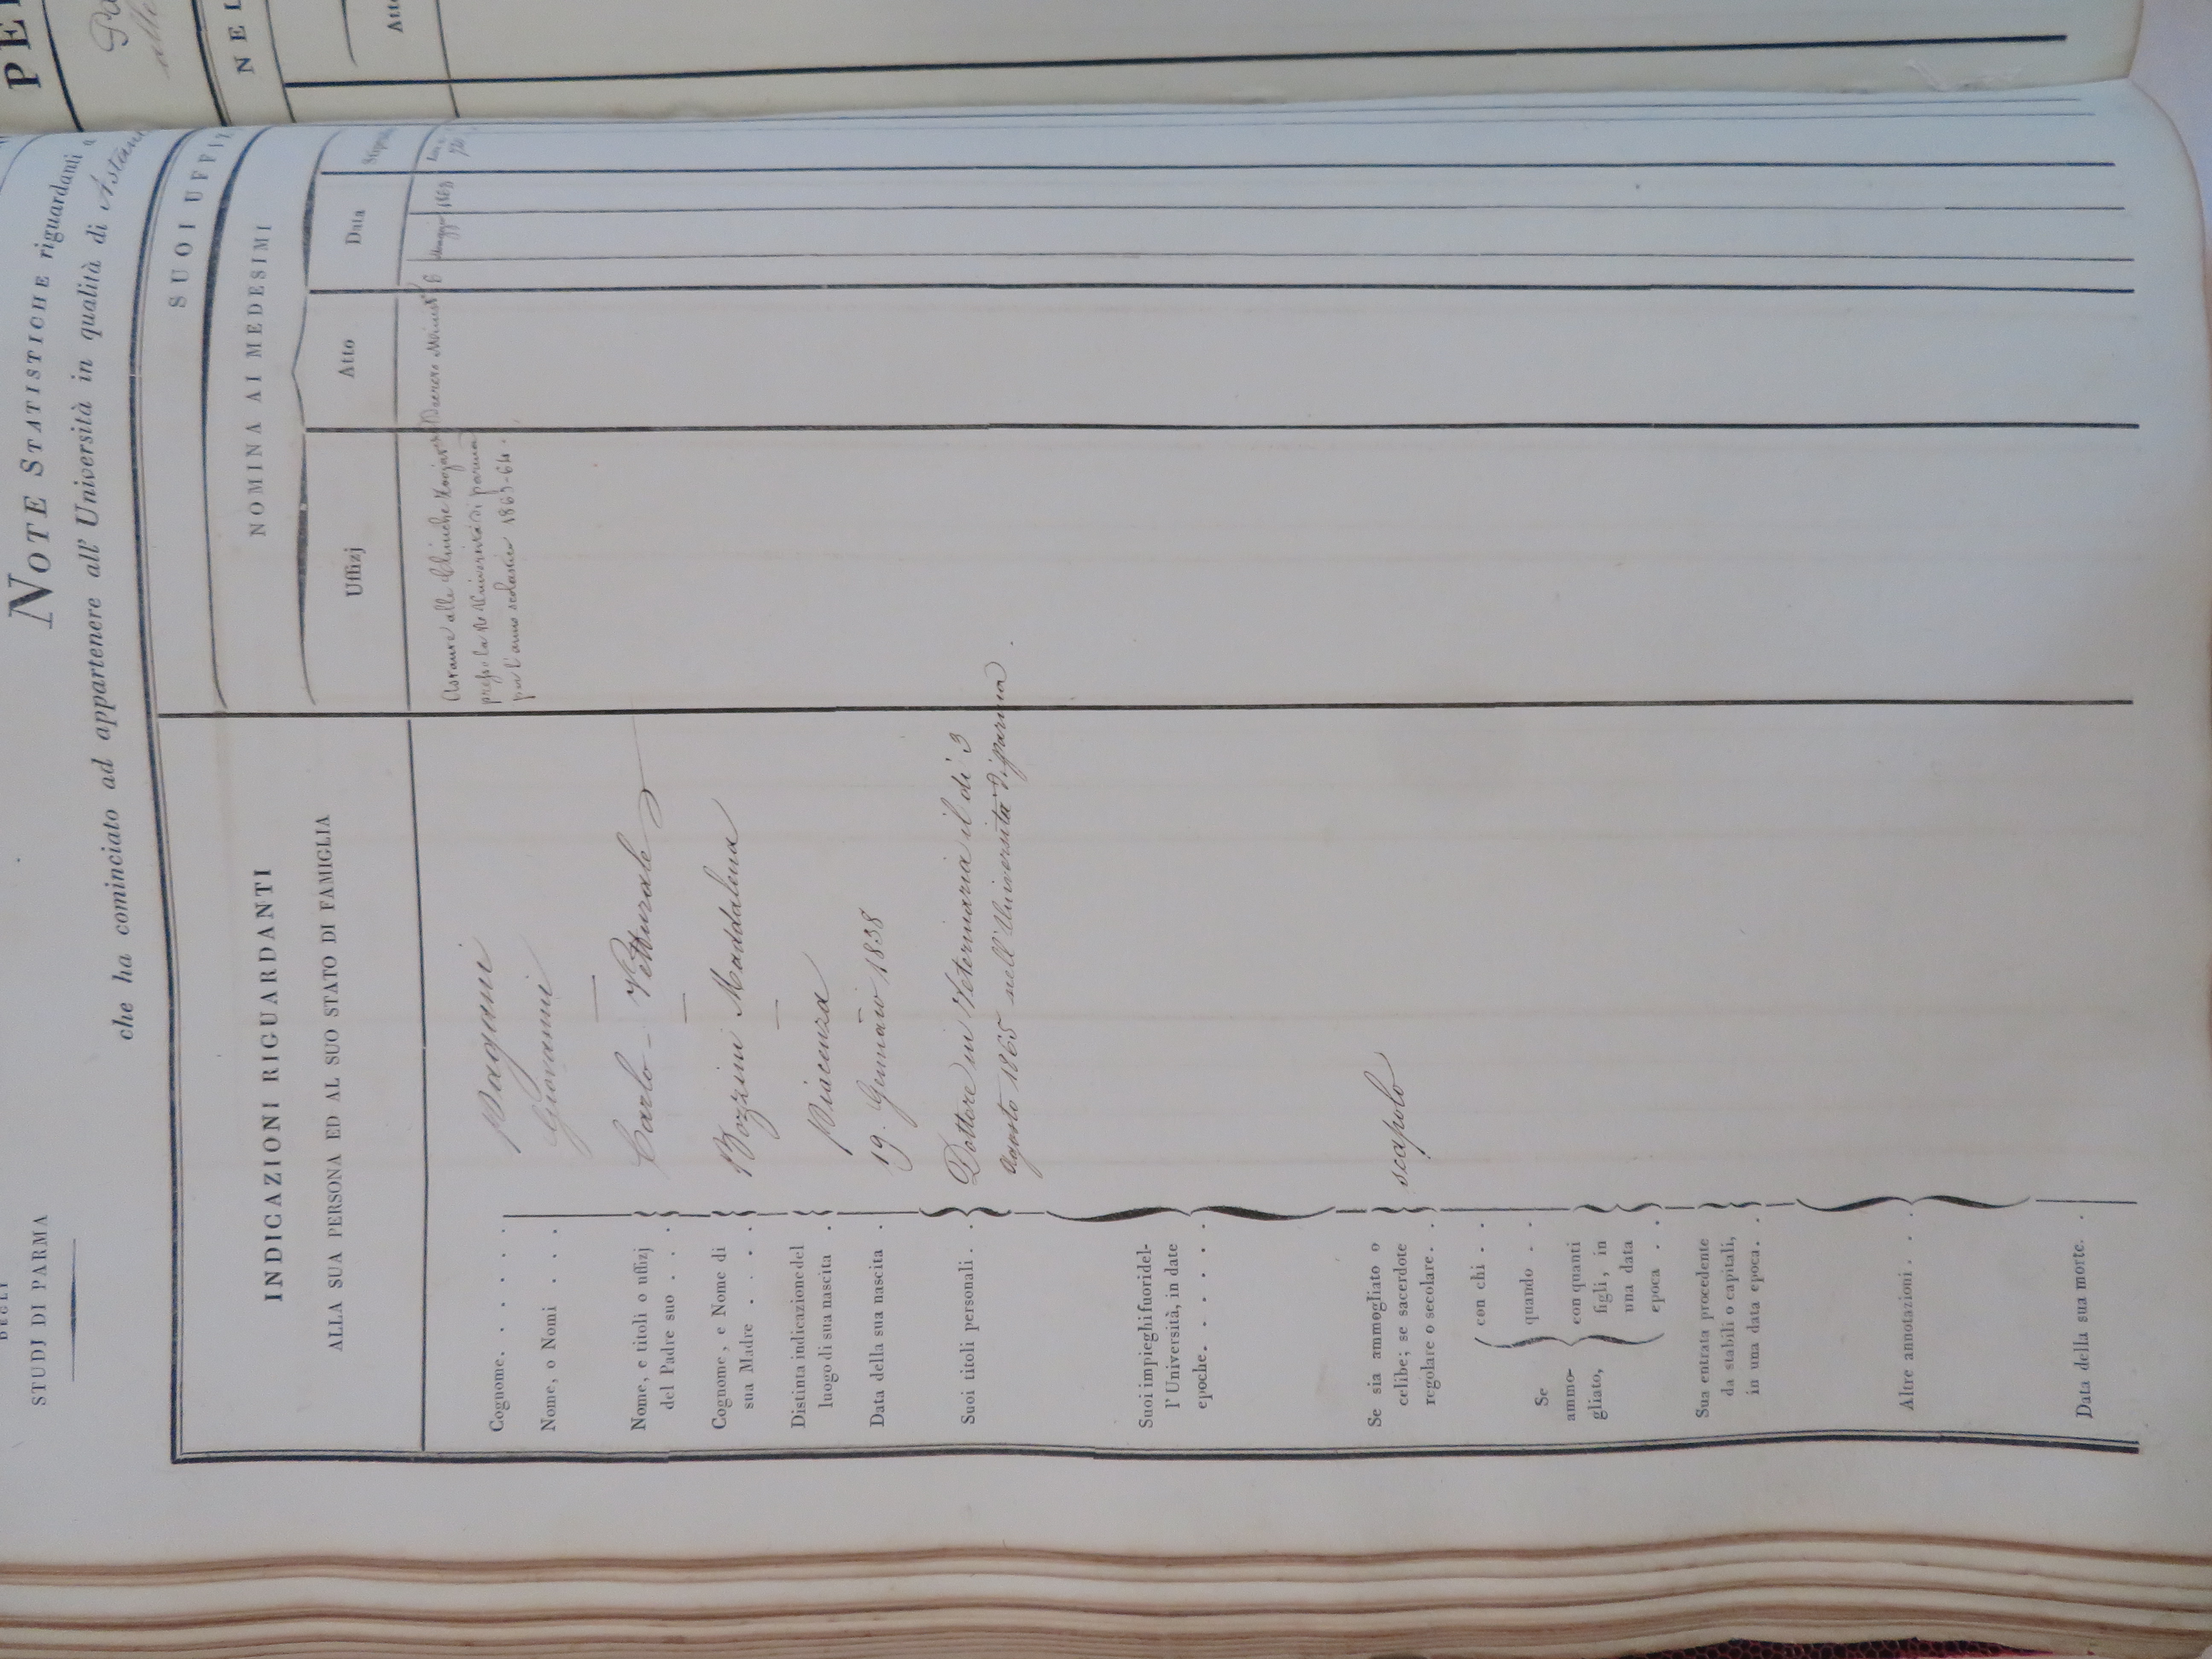 DEGLI
STUDJ DI PARMA
NOTE STATISTICHE riguardanti
che ha cominciato ad appartenere all' Università in qualità di Astan
INDICAZIONI RIGUARDANTI
ALLA SUA PERSONA ED AL SUO STATO DI FAMIGLIA
SUOI UFFIZ
NOMINA AI MEDESIMI
Uffizj
Atto
Data
Stipen
Cognome. . . . . . Pagani
Nome, o Nomi . . . Giovanni
Nome, e titoli o uffizj
del Padre suo . . . Carlo - Vetturale
Cognome, e Nome di
sua Madre . . . . Bozzini Maddalena
Distinta indicazione del
luogo di sua nascita . Piacenza
Data della sua nascita . 19. Gennaio 1838
Suoi titoli personali. . Dottore in Veterinaria il dì 3
Agosto 1865 nell'Università di parma.
Suoi impieghi fuori del-
l' Università, in date
epoche. . . . . .
Se sia ammogliato o
celibe; se sacerdote
regolare o secolare. . scapolo
Se
ammo-
gliato,
con chi . .
quando . .
con quanti
figli, in
una data
epoca . .
Sua entrata procedente
da stabili o capitali,
in una data epoca. .
Altre annotazioni. . .
Data della sua morte. .
alle Cliniche
presso la R. Università di parma
per l'anno scolastico 1863-64.
Decreto Minist.
6 Maggio 1863
PE
NEL
Att
alle